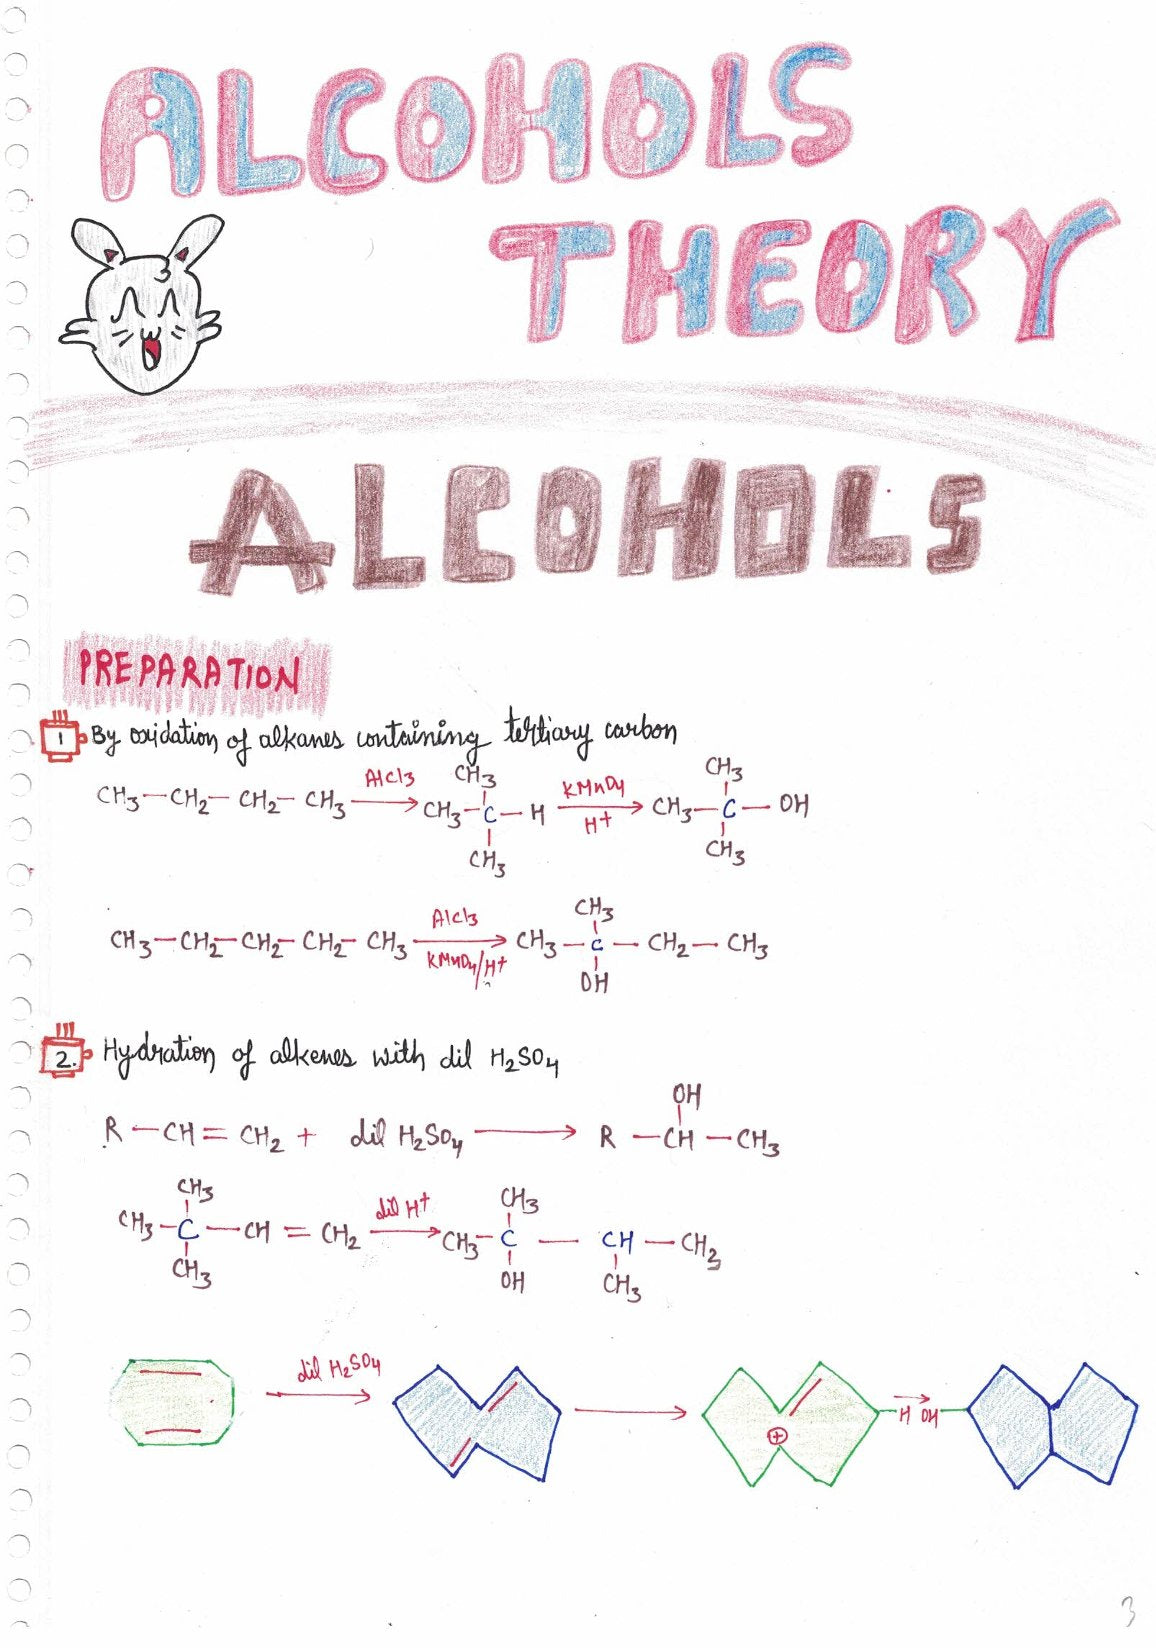 ALCOHOLS
THEORY
ALCOHOLS
PREPARATION
1 By oxidation of alkanes containing tertiary carbon
CH3
CH3
CH3—CH2—CH2—CH3 AlCl3 CH3—C—H KMnO4 H+ CH3—C—OH
CH3
CH3
CH3
CH3—CH2—CH2—CH2—CH3 AlCl3 KMnO4/H+ CH3—C—CH2—CH3
OH
2. Hydration of alkenes with dil H2SO4
OH
R—CH=CH2 + dil H2SO4 → R—CH—CH3
CH3
CH3
CH3—C—CH=CH2 dil H+ CH3—C—CH—CH3
CH3
OH
CH3
dil H2SO4
+
H OH
3